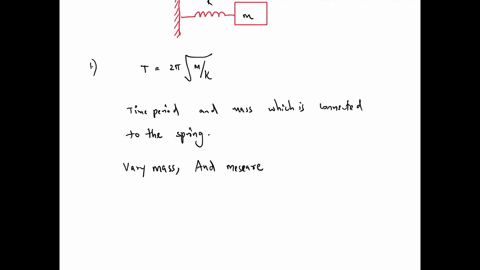 K
m
1) T = 2π √M/K
Time period and mass which is connected
to the spring.
Vary mass, And meseare